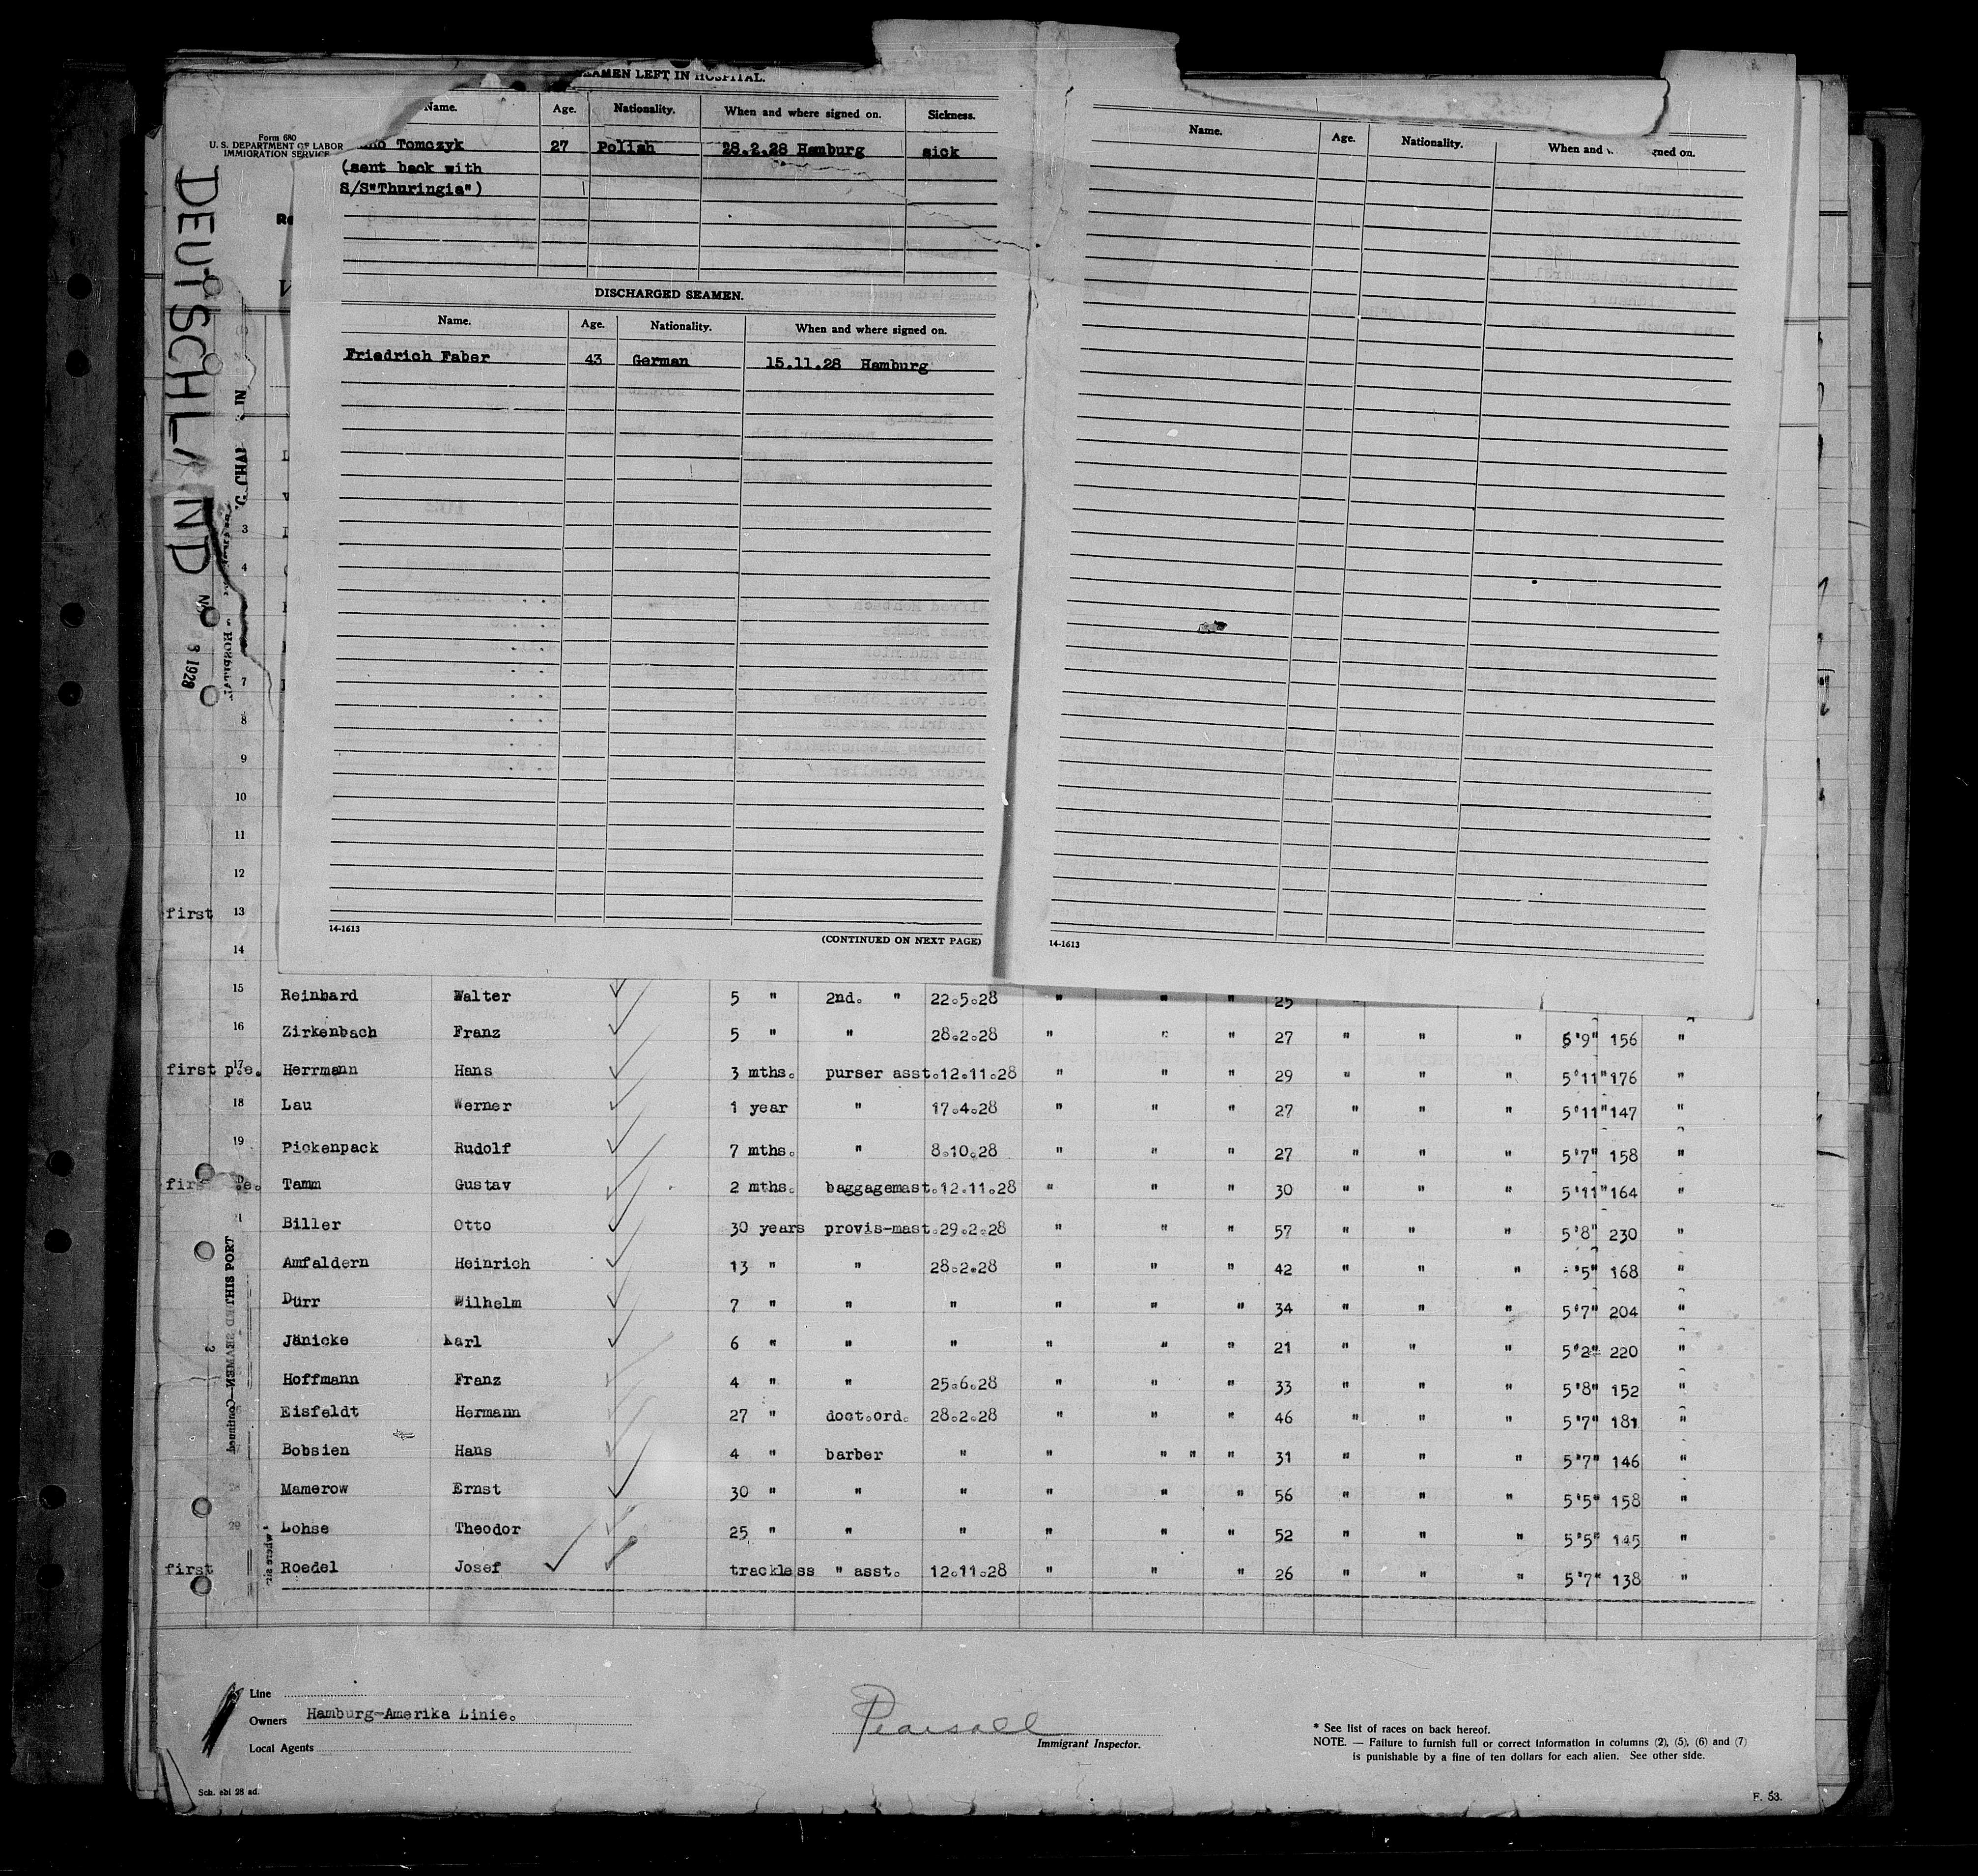 SEAMEN LEFT IN HOSPITAL.
Name. Age. Nationality. When and where signed on. Sickness.
Tomczyk 27 Polish 28.2.28 Hamburg sick
(sent back with
S/S"Thuringia")
DISCHARGED SEAMEN.
Name. Age. Nationality. When and where signed on.
Friedrich Faber 43 German 15.11.28 Hamburg
14-1613
(CONTINUED ON NEXT PAGE)
Name. Age. Nationality. When and signed on.
14-1613
Form 680
U. S. DEPARTMENT OF LABOR
IMMIGRATION SERVICE
DEUTSCHLAND
8 1928
3
4
7
8
9
10
11
12
first 13
14
15 Reinhard Walter 5 " 2nd. " 22.5.28 " " " 25 "
16 Zirkenbach Franz 5 " " 28.2.28 " " " 27 " " " 5'9" 156 "
first p.e. 17 Herrmann Hans 3 mths. purser asst. 12.11.28 " " " 29 " " " 5'11" 176 "
18 Lau Werner 1 year " 17.4.28 " " " 27 " " " 5'11" 147 "
19 Pickenpack Rudolf 7 mths. " 8.10.28 " " " 27 " " " 5'7" 158 "
Tamm Gustav 2 mths. baggagemast. 12.11.28 " " " 30 " " " 5'11" 164 "
Biller Otto 30 years provis-mast. 29.2.28 " " " 57 " " " 5'8" 230 "
Amfaldern Heinrich 13 " " 28.2.28 " " " 42 " " " '5" 168 "
Dürr Wilhelm 7 " " " " " " 34 " " " 5'7" 204 "
Jänicke Karl 6 " " " " " " 21 " " " 5'2" 220 "
Hoffmann Franz 4 " " 25.6.28 " " " 33 " " " 5'8" 152 "
Eisfeldt Hermann 27 " doct.ord. 28.2.28 " " " 46 " " " 5'7" 181 "
Bobsien Hans 4 " barber " " " " " 31 " " " 5'7" 146 "
28 Mamerow Ernst 30 " " " " " " 56 " " " 5'5" 158 "
29 Lohse Theodor 25 " " " " " " 52 " " " 5'5" 145 "
first Roedel Josef trackless " asst. 12.11.28 " " " 26 " " " 5'7" 138 "
Line
Owners Hamburg-Amerika Linie.
Local Agents
Pearsall
Immigrant Inspector.
* See list of races on back hereof.
NOTE. — Failure to furnish full or correct information in columns (2), (5), (6) and (7)
is punishable by a fine of ten dollars for each alien. See other side.
F. 53.